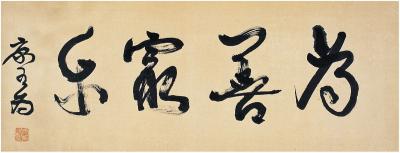 為善最樂
康有為